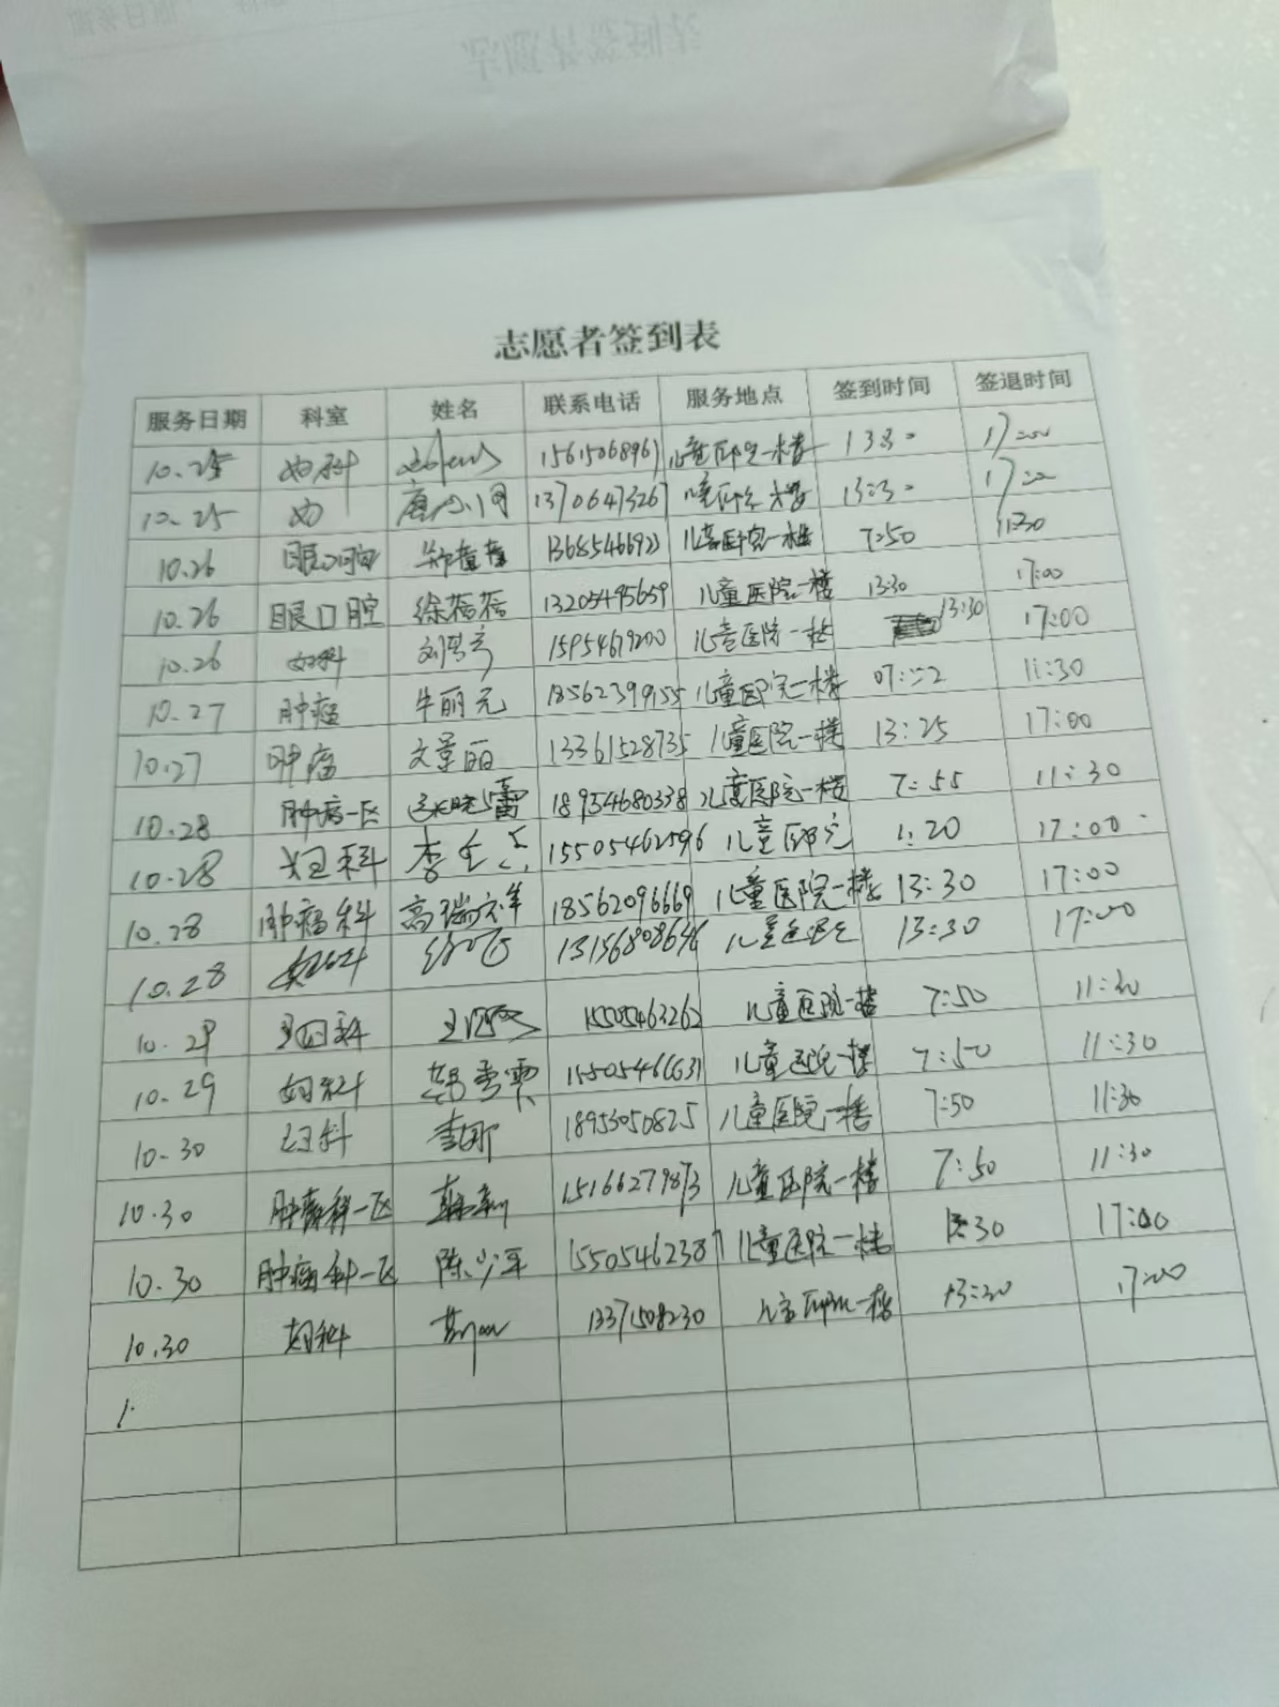 志愿者签到表
服务日期 科室 姓名 联系电话 服务地点 签到时间 签退时间
10.25 妇科 15615068961 儿童医院一楼 13:30 17:00
10.25 妇 13706473267 13:30 17:00
10.26 眼口腔 13685466923 儿童医院一楼 7:50 11:30
10.26 眼口腔 徐蓓蓓 13205495659 儿童医院一楼 13:30 17:00
10.26 妇科 15954679200 儿童医院一楼 13:30 17:00
10.27 肿瘤 牛丽元 18562399155 儿童医院一楼 11:30
10.27 肿瘤 文景丽 13361528735 儿童医院一楼 13:25 17:00
10.28 肿瘤一区 18954680338 儿童医院一楼 7:55 11:30
10.28 妇科 15505462596 儿童医院 1:20 17:00
10.28 肿瘤科 18562096669 儿童医院一楼 13:30 17:00
10.28 妇科 13156808646 儿童医院 13:30 17:00
10.29 15505463262 儿童医院一楼 7:50 11:30
10.29 妇科 15505466631 儿童医院一楼 7:50 11:30
10.30 妇科 李那 18953050825 儿童医院一楼 7:50 11:30
10.30 肿瘤科一区 15166279873 儿童医院一楼 7:50 11:30
10.30 肿瘤科一区 陈少军 15505462387 儿童医院一楼 13:30 17:00
10.30 妇科 13371508230 儿童医院一楼 13:20 17:00
1.